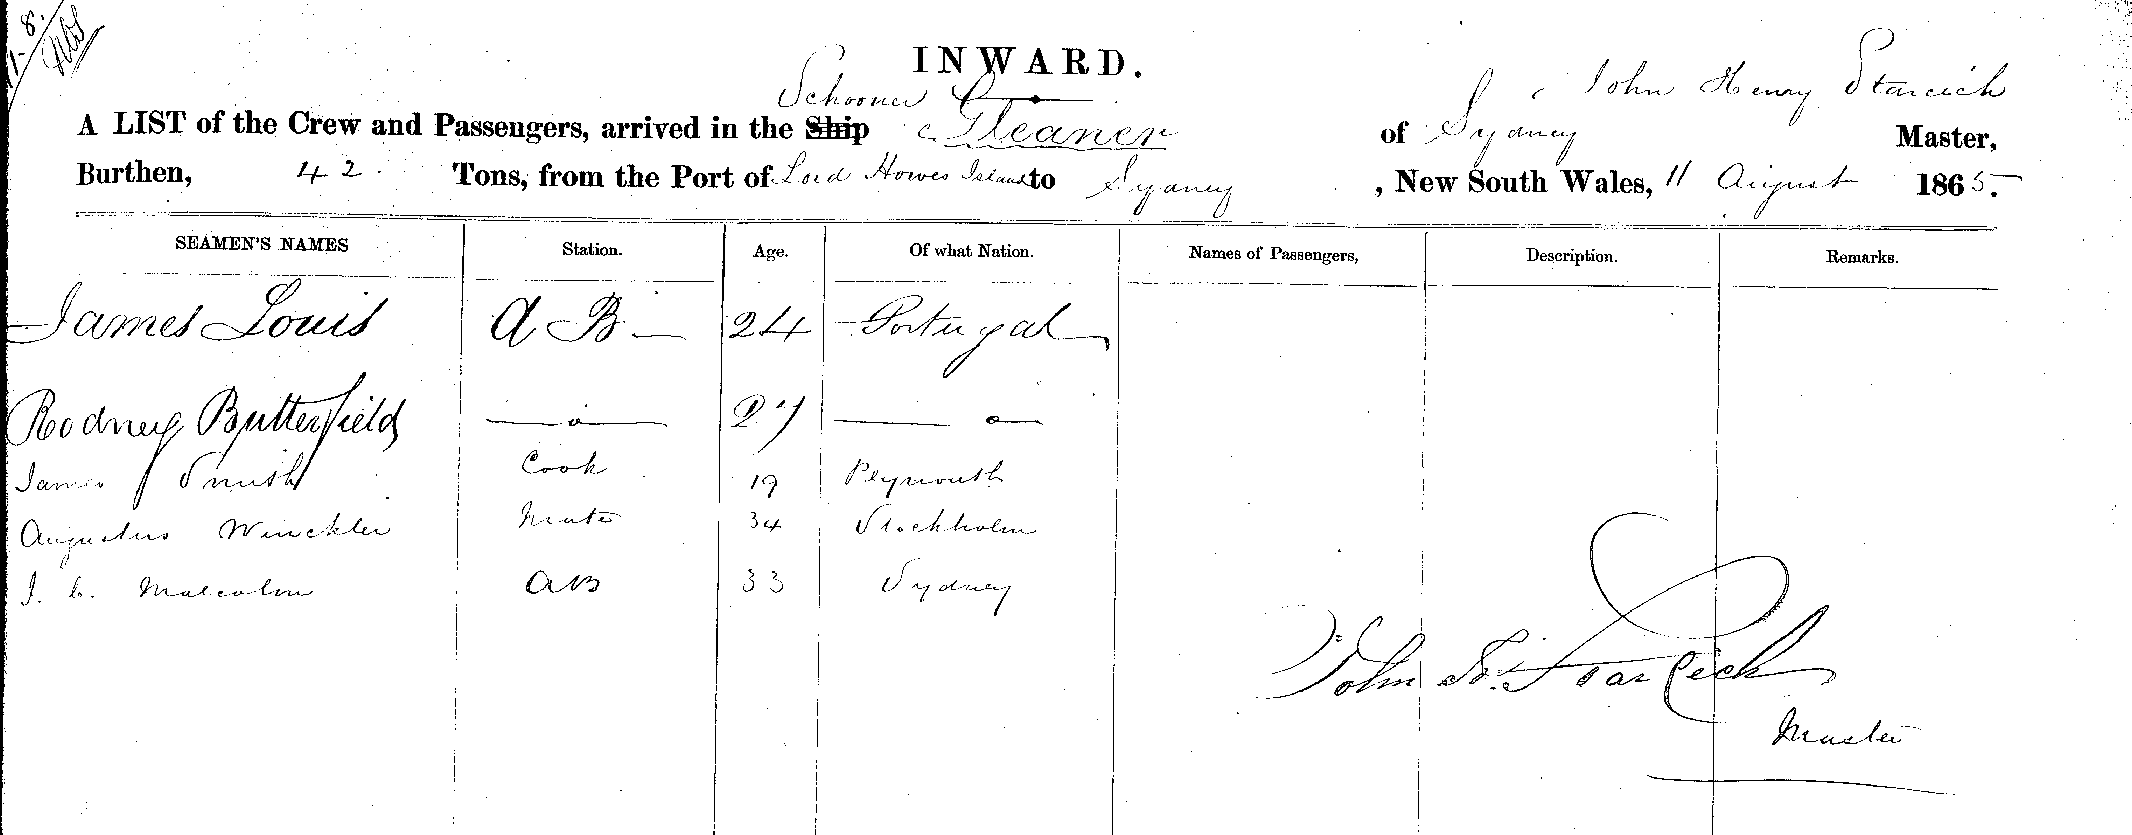 11-8.
INWARD.
Schooner
John Henry Starcich
A LIST of the Crew and Passengers, arrived in the Ship Gleaner of Sydney Master,
Burthen, 42. Tons, from the Port of Lord Howes Island to Sydney, New South Wales, 11 August 1865.
SEAMEN'S NAMES Station. Age. Of what Nation. Names of Passengers, Description. Remarks.
James Louis A B 24 Portugal
Rodney Butterfield —o— 27 —o—
James Smith Cook 19 Plymouth
Augustus Winckler Mate 34 Stockholm
J. C. Malcolm AB 33 Sydney
John H. Starcich
Master